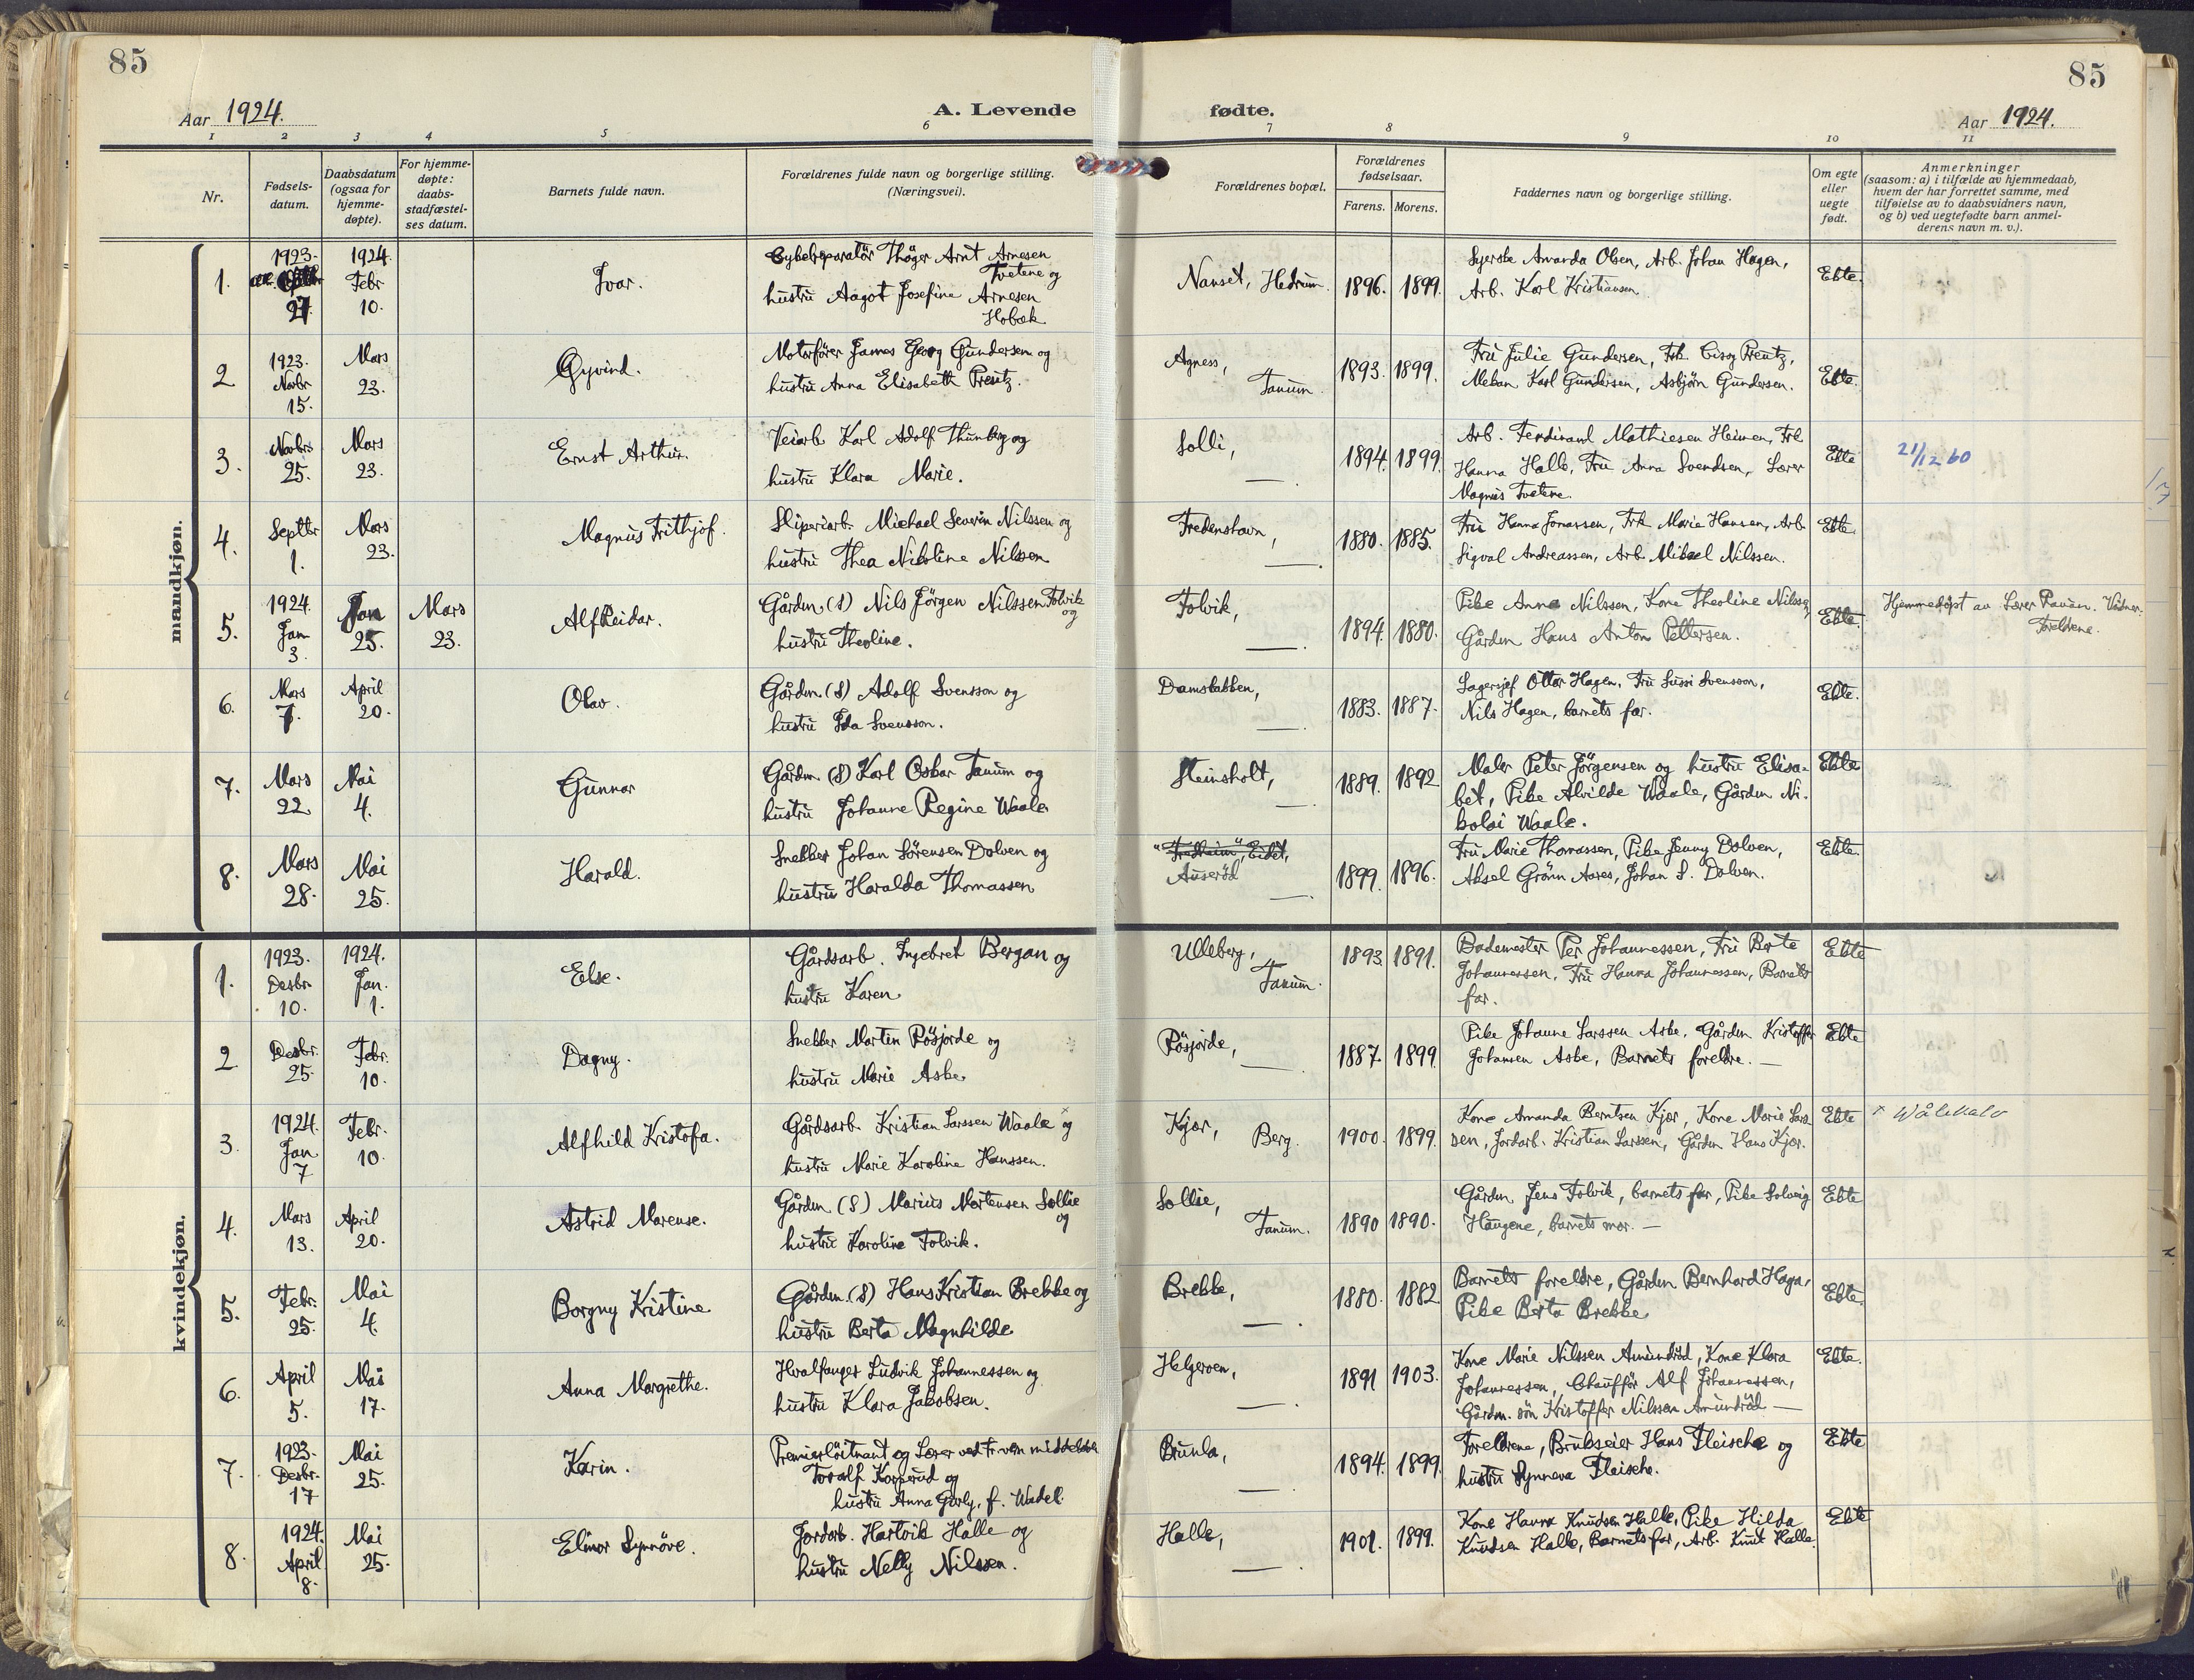 85
85
Aar 1924.
A. Levende fødte.
Aar 1924.
1 2 3 4 5 6 7 8 9 10 11
Nr.
Fødsels-
datum.
Daabsdatum
(ogsaa for
hjemme-
døpte).
For hjemme-
døpte:
daabs-
stadfæstel-
ses datum.
Barnets fulde navn.
Forældrenes fulde navn og borgerlige stilling.
(Næringsvei).
Forældrenes bopæl.
Forældrenes
fødselsaar.
Farens. Morens.
Faddernes navn og borgerlige stilling.
Om egte
eller
uegte
født.
Anmerkninger
(saasom: a) i tilfælde av hjemmedaab,
hvem der har forrettet samme, med
tilføielse av to daabsvidners navn,
og b) ved uegtefødte barn anmel-
derens navn m. v.).
mandkjøn.
1.
1923.
27.
1924.
Febr
10.
Ivar.
Cykelreparatør Thøger Arnt Arnesen
Tvetene og
hustru Aagot Josefine Arnesen
Hobæk
Nanset, Hedrum.
1896. 1899.
Syerske Amanda Olsen, Arb. Johan Hagen,
Arb. Karl Kristiansen
Ekte.
2
1923.
Novbr
15.
Mars
23.
Øyvind.
Motorfører James Georg Gundersen og
hustru Anna Elisabeth Prentz.
Agness,
Tanum.
1893. 1899.
Fru Julie Gundersen, Frk. Cisoy Prentz,
Mekan Karl Gundersen, Asbjørn Gundersen.
Ekte.
3.
Novbr.
25.
Mars
23.
Ernst Arthur.
Veiarb. Karl Adolf Thunberg og
hustru Klara Marie.
Solli,
— .
1894. 1899.
Arb. Ferdinand Mathiesen Heimen, Frk
Hanna Halle, Fru Anna Svendsen, Lærer
Magnus Tvetene.
Ekte
21/12 60
4.
Septbr
1.
Mars
23.
Magnus Frithjof.
Sliperiarb. Michael Severin Nilssen og
hustru Thea Nikoline Nilsen
Fredenshavn,
— .
1880. 1885.
Fru Hanna Jonassen, Frk Marie Hansen, Arb.
Sigval Andreassen, Arb. Mikael Nilssen.
Ekte.
5.
1924.
Jan
3.
Jan
25.
Mars
23.
Alf Reidar.
Gårdm. (S) Nils Jörgen Nilssen Folvik
og
hustru Theoline.
Folvik,
— .
1894. 1880.
Pike Anna Nilssen, Kone Theoline Nilssen,
Gårdm Hans Anton Pettersen.
Ekte.
Hjemmedöpt av Lærer Rauan. Vidner.
Foreldrene.
6.
Mars
7.
April
20.
Olav.
Gårdm. (S) Adolf Svensson og
hustru Ida Svensson.
Damsbakken,
— .
1883. 1887.
Lagersjef Ottar Hagen, Fru Sussi Svensson,
Nils Hagen, barnets far.
Ekte.
7.
Mars
22
Mai
4.
Gunnar
Gårdm. (S) Karl Oskar Tanum og
hustru Johanne Regine Waale
Steinsholt,
— .
1889. 1892
Maler Peter Jörgensen og hustru Elisa-
bet, Pike Alvilde Waale, Gårdm Ni-
kolai Waale.
Ekte
8.
Mars
28.
Mai
25.
Harald.
Snekker Johan Sörensen Dolven og
hustru Haralda Thomassen
"Fredheim", Eidet,
Auseröd
— .
1899. 1896.
Fru Marie Thomassen, Pike Jenny Dolven,
Aksel Grönn Aares, Johan S. Dolven.
Ekte.
kvindekjøn.
1.
1923.
Desbr.
10.
1924.
Jan.
1.
Else.
Gårdsarb. Ingebret Bergan og
hustru Karen
Ulleberg,
Tanum.
1893. 1891.
Bademester Per Johannessen, Fru Berte
Johannessen, Fru Hanna Johannessen, Barnets
far.
Ekte
2
Desbr.
25.
Febr.
10.
Dagny.
Snekker Martin Rösjorde og
hustru Marie Aske
Rösjorde,
— .
1887. 1899
Pike Johanne Larssen Aske. Gårdm Kristoffer
Johansen Aske, Barnets foreldre. —
Ekte
3.
1924.
Jan
7
Febr.
10.
Alfhild Kristofa.
Gårdsarb. Kristian Larssen Waale x og
hustru Marie Karoline Hanssen.
Kjær, Berg.
1900. 1899.
Kone Amanda Berntsen Kjær, Kone Marie Lars-
sen, Jordarb. Kristian Larssen, Gårdm Hans Kjær.
Ekte
x Wålskalv
4.
Mars
13.
April
20.
Astrid Marense.
Gårdm. (S) Marius Mortensen Sollie
og
hustru Karoline Folvik.
Sollie,
Tanum.
1890 1890.
Gårdm. Jens Folvik, barnets far, Pike Solveig
Haugene, barnets mor. —
Ekte
5.
Febr.
25.
Mai
4.
Borgny Kristine
Gårdm. (S) Hans Kristian Brekke og
hustru Berta Magnhilde
Brekke,
— .
1880. 1882
Barnets foreldre, Gårdm Bernhard Haga,
Pike Berta Brekke
Ekte.
6.
April
5.
Mai
17.
Anna Margrethe.
Hvalfanger Ludvik Johannessen og
hustru Klara Jakobsen.
Helgeroen,
— .
1891 1903.
Kone Marie Nilssen Amundröd, Kone Klara
Johannessen, Chauffør Alf Johannessen,
Gårdm. sön Kristoffer Nilssen Amundröd —
Ekte.
7.
1923.
Desbr.
17
Mai
25.
Karin.
Premierlöitnant og Lærer ved Fr.vern middelskole
Toralf Korperud og
hustru Anna Gurly, f. Wadel.
Brunla,
— .
1894. 1899.
Foreldrene, Brukseier Hans Fleische og
hustru Synneva Fleische.
Ekte
8.
1924.
April
8.
Mai
25.
Elinor Synnöve.
Jordarb. Hartvik Halle og
hustru Nelly Nilssen.
Halle,
— .
1901. 1899.
Kone Hanna Knudsen Halle, Pike Hilda
Knudsen Halle, Barnets far, Arb. Knut Halle.
Ekte